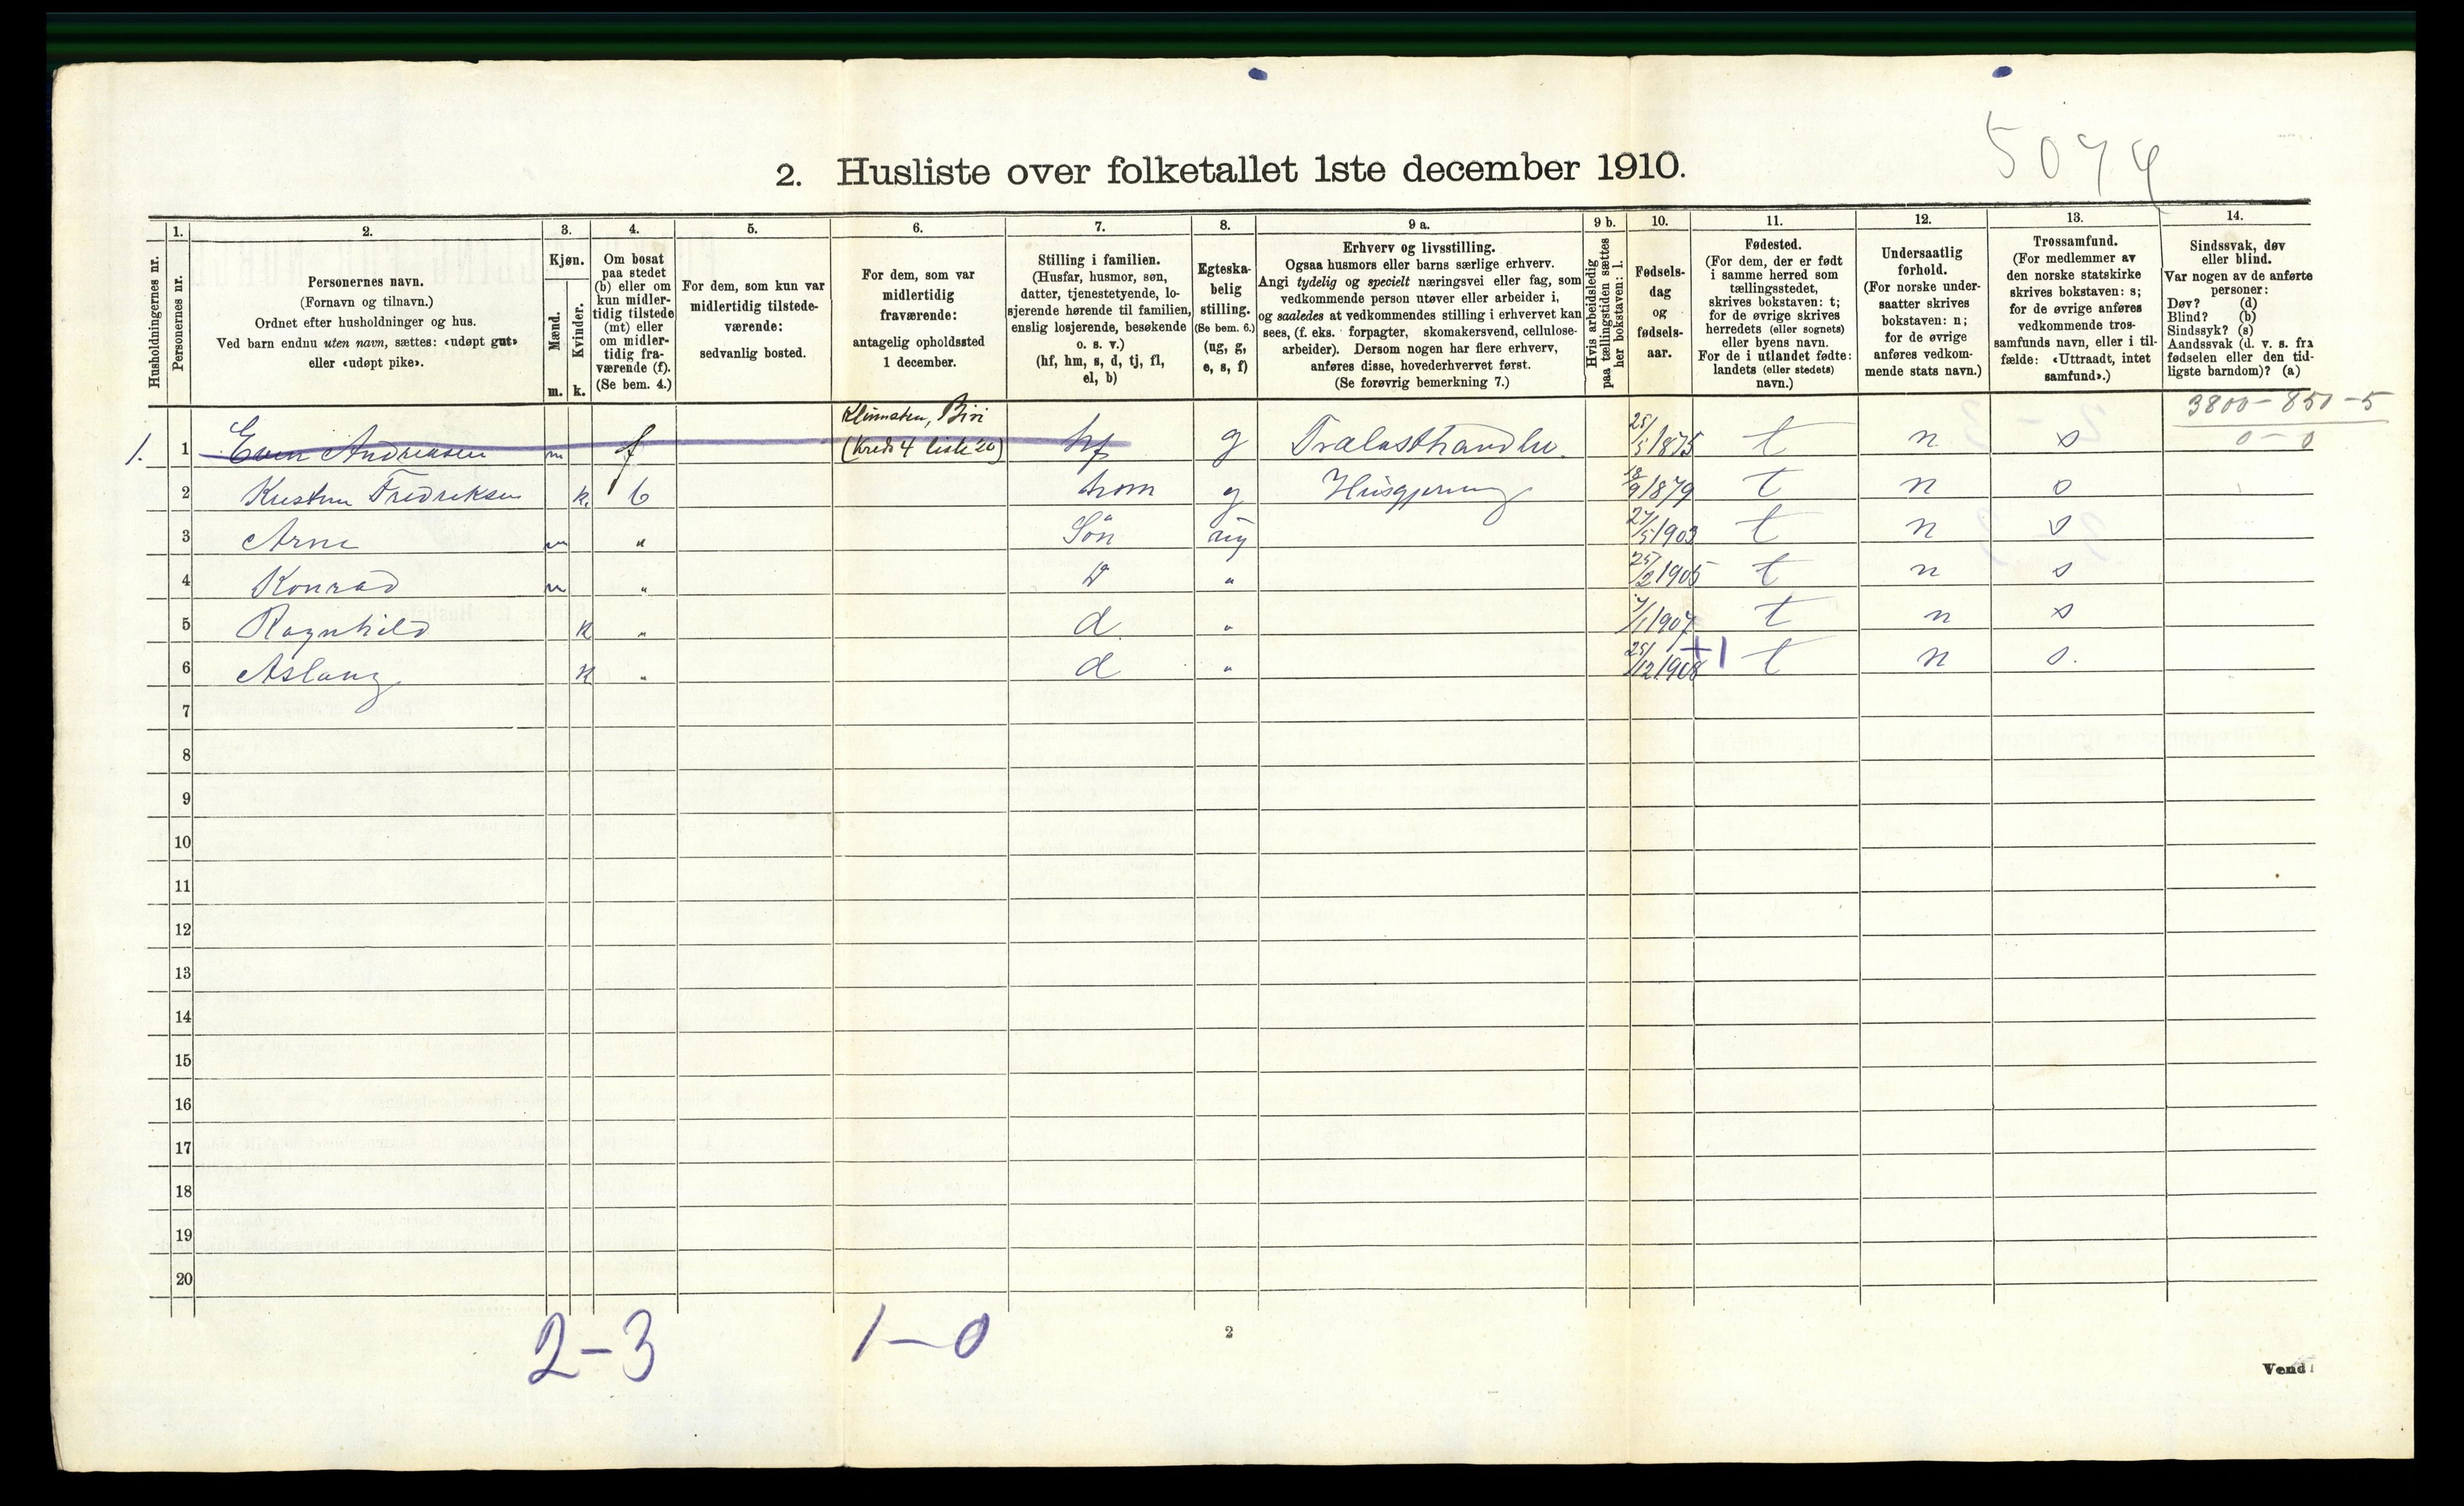 5074
2. Husliste over folketallet 1ste december 1910.
Husholdningernes nr.
1.
Personernes nr.
2.
Personernes navn.
(Fornavn og tilnavn.)
Ordnet efter husholdninger og hus.
Ved barn endnu uten navn, sættes: «udøpt gut»
eller «udøpt pike».
3.
Kjøn.
Mænd.
Kvinder.
m. k.
4.
Om bosat
paa stedet
(b) eller om
kun midler-
tidig tilstede
(mt) eller
om midler-
tidig fra-
værende (f).
(Se bem. 4.)
5.
For dem, som kun var
midlertidig tilstede-
værende:
sedvanlig bosted.
6.
For dem, som var
midlertidig
fraværende:
antagelig opholdssted
1 december.
7.
Stilling i familien.
(Husfar, husmor, søn,
datter, tjenestetyende, lo-
sjerende hørende til familien,
enslig losjerende, besøkende
o. s. v.)
(hf, hm, s, d, tj, fl,
el, b)
8.
Egteska-
belig
stilling.
(Se bem. 6.)
(ug, g,
e, s, f)
9 a.
Erhverv og livsstilling.
Ogsaa husmors eller barns særlige erhverv.
Angi tydelig og specielt næringsvei eller fag, som
vedkommende person utøver eller arbeider i,
og saaledes at vedkommendes stilling i erhvervet kan
sees, (f. eks. forpagter, skomakersvend, cellulose-
arbeider). Dersom nogen har flere erhverv,
anføres disse, hovederhvervet først.
(Se forøvrig bemerkning 7.)
9 b.
Hvis arbeidsledig
paa tællingstiden sættes
her bokstaven: l.
10.
Fødsels-
dag
og
fødsels-
aar.
11.
Fødested.
(For dem, der er født
i samme herred som
tællingsstedet,
skrives bokstaven: t;
for de øvrige skrives
herredets (eller sognets)
eller byens navn.
For de i utlandet fødte:
landets (eller stedets)
navn.)
12.
Undersaatlig
forhold.
(For norske under-
saatter skrives
bokstaven: n;
for de øvrige
anføres vedkom-
mende stats navn.)
13.
Trossamfund.
(For medlemmer av
den norske statskirke
skrives bokstaven: s;
for de øvrige anføres
vedkommende tros-
samfunds navn, eller i til-
fælde: «Uttraadt, intet
samfund».)
14.
Sindssvak, døv
eller blind.
Var nogen av de anførte
personer:
Døv? (d)
Blind? (b)
Sindssyk? (s)
Aandssvak (d. v. s. fra
fødselen eller den tid-
ligste barndom)? (a)
3800-850-5
0-0
Biri
1. 1 Even Andreasen m f (Kreds 4 liste 20) hf g Trælasthandler. 25/5 1875 t n s
2 Kristine Fredriksen k. b hom g Husgjerning 18/9 1879 t n s
3 Arne m " Søn ug 27/5 1903 t n s
4 Konrad m " " 25/2 1905 t n s
5 Ragnhild k " d " 7/1 1907 t n s
6 Aslaug k " d " 25/12 1908 +1 t n s.
7
8
9
10
11
12
13
14
15
16
17
18
19
20
2-3 1-0
2
Vend!